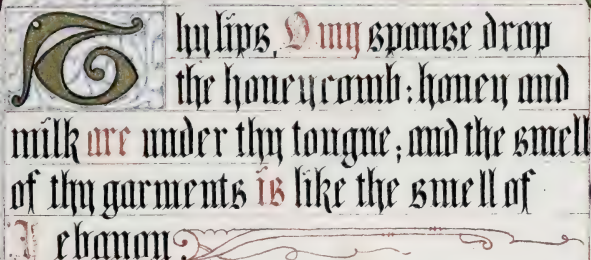 Thy lips, O my spouse drop
the honeycomb: honey and
milk are under thy tongue; and the smell
of thy garments is like the smell of
Lebanon.